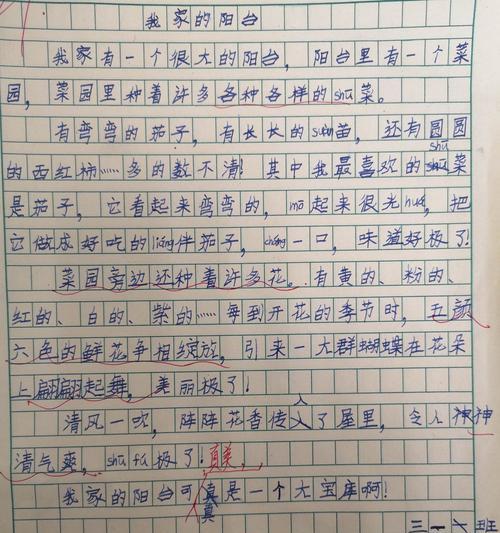 我家的阳台
我家有一个很大的阳台，阳台里有一个菜
园，菜园里种着许多各种各样的shū菜。
有弯弯的茄子，有长长的suàn苗，还有圆圆
的西红柿……多的数不清！其中我最喜欢的shū菜
是茄子，它看起来弯弯的，mō起来很光huá，把
它做成好吃的liáng伴茄子，cháng一口，味道好极了！
菜园旁边还种着许多花。有黄的、粉的、
红的、白的、紫的……每到开花的季节时，五颜
六色的鲜花争相绽放，引来一大群蝴蝶在花朵
上翩翩起舞，美丽极了！
清风一吹，阵阵花香传入了屋里，令人神
清气爽，shū fú极了！真美，
我家的阳台可真是一个大宝库啊！
真
三一六班